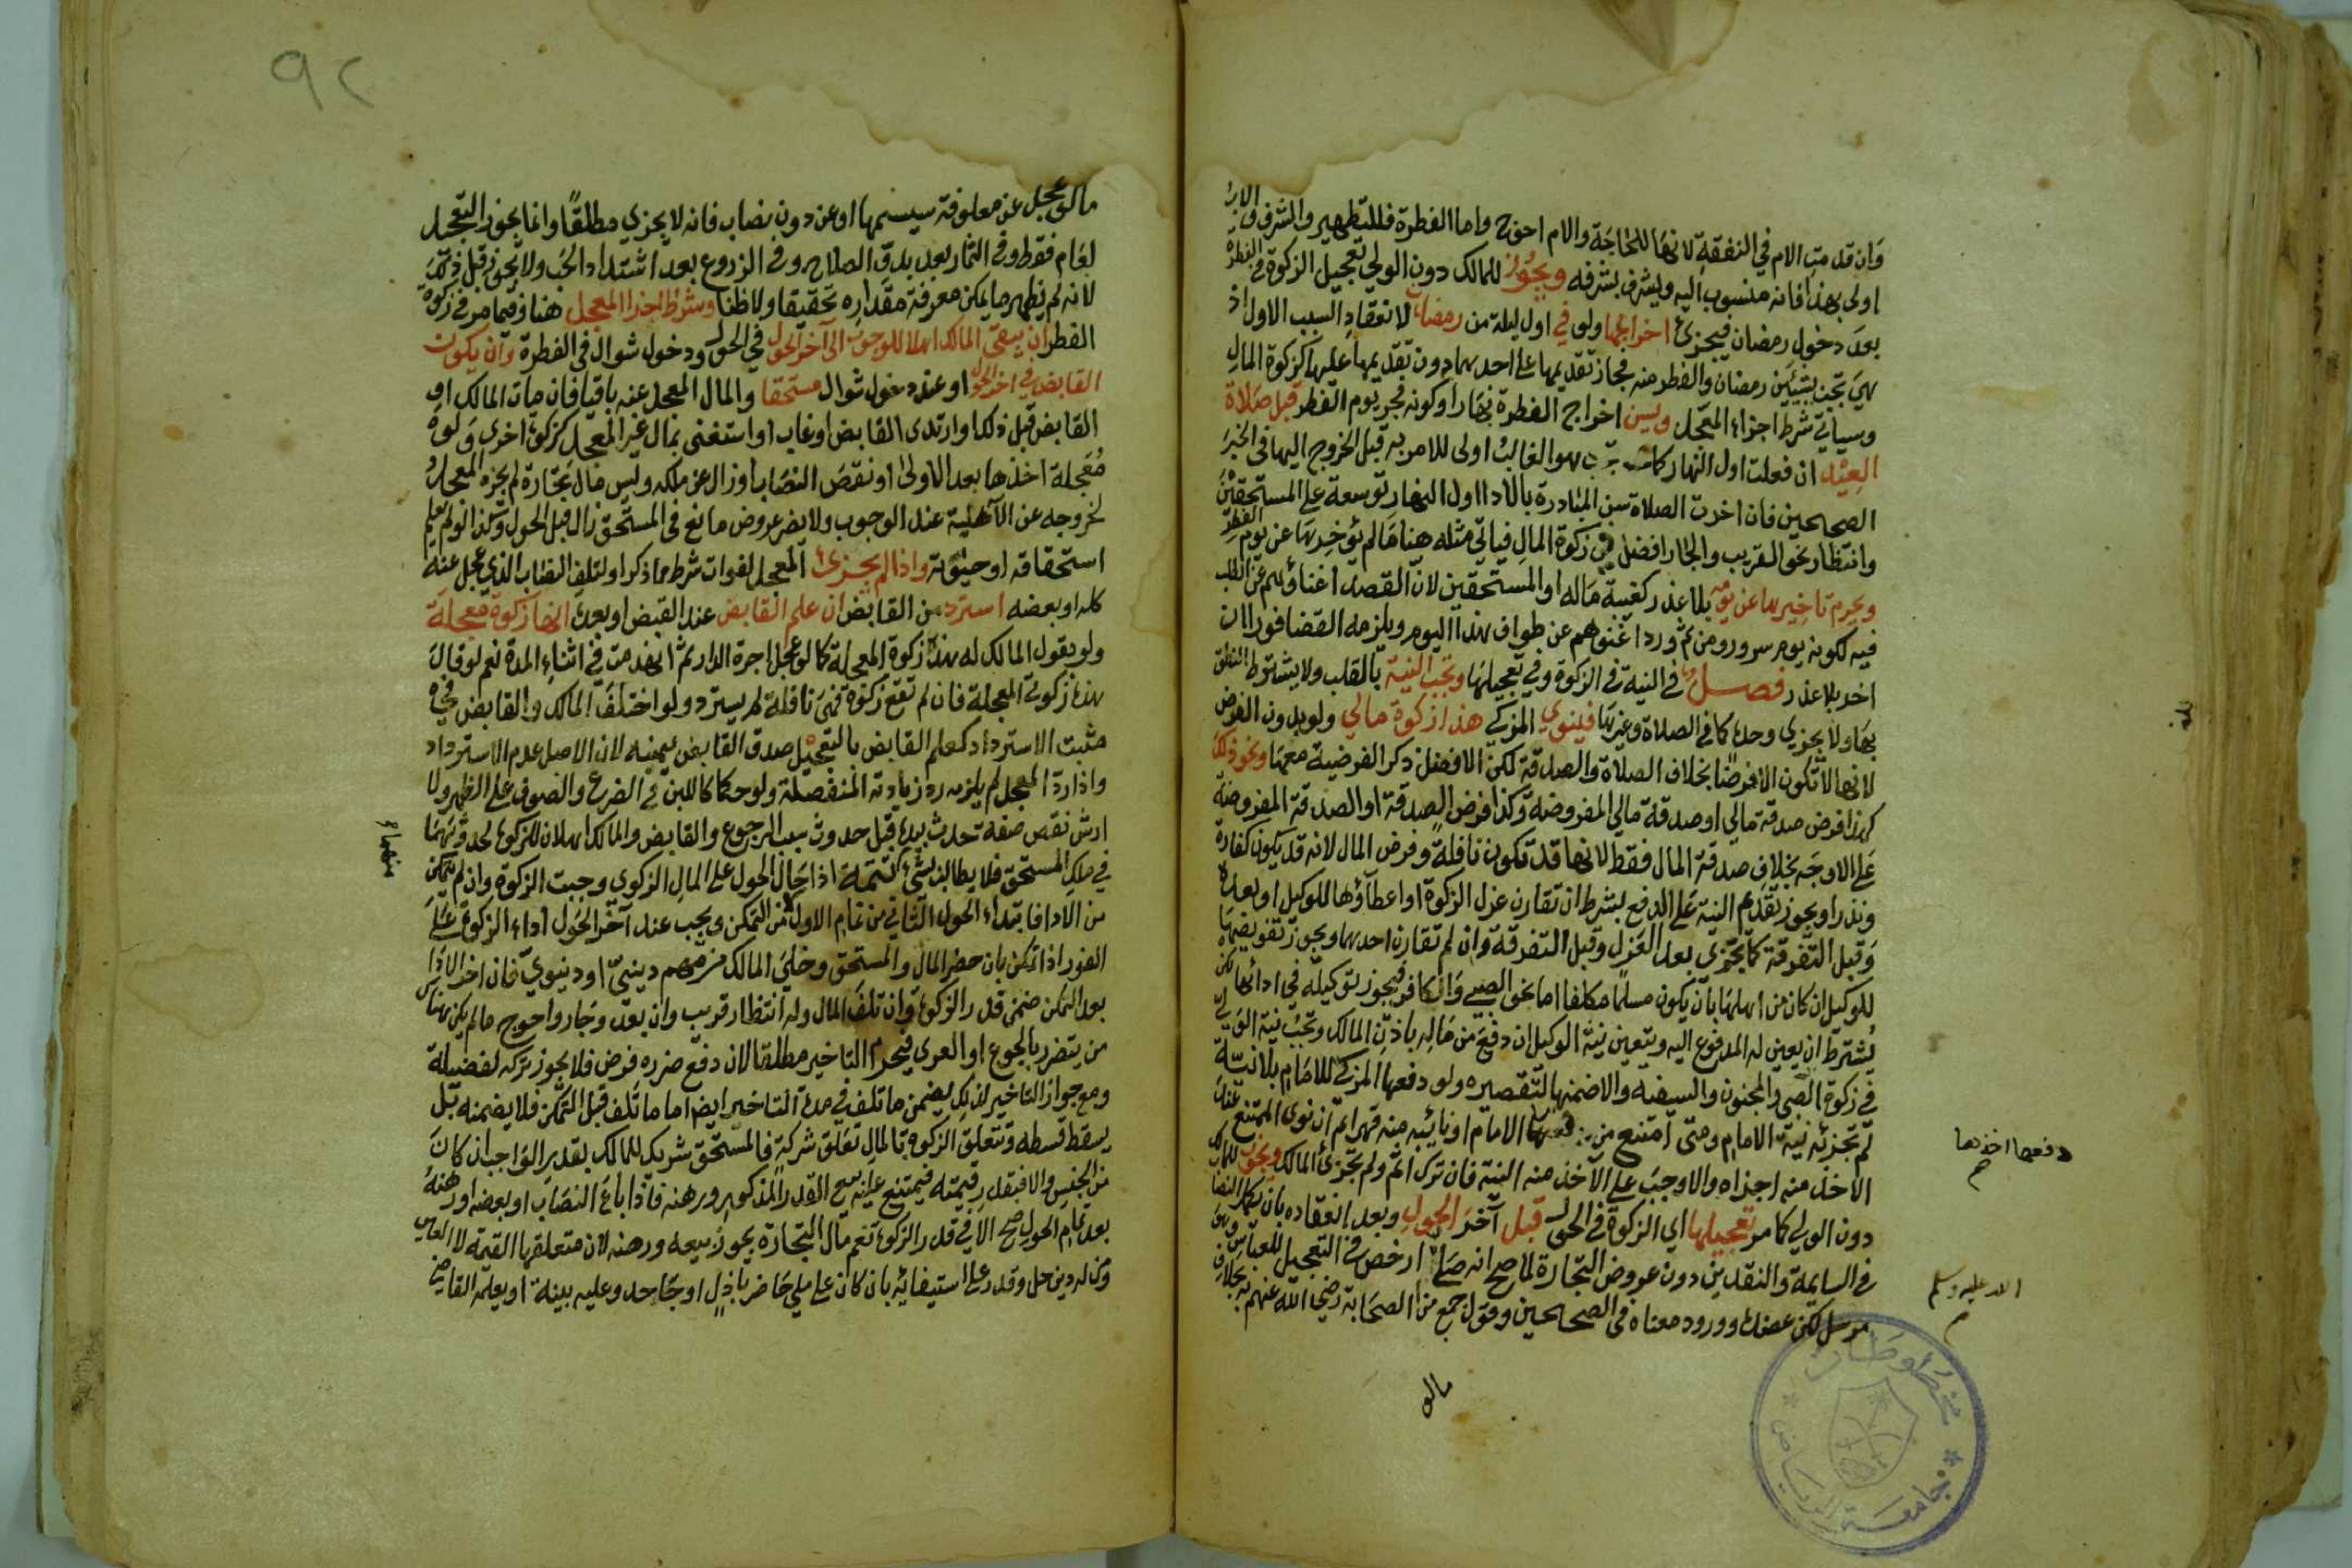 وان قدمت الام في النفقة لانها للحاجة والام احوج واما الفطرة فللتطهير والشرف والاب
اولى بهذا فانه منسوب اليه ويشرف بشرفه ويجوز للمالك دون الولي تعجيل الزكوة في الفطرة
بعد دخول رمضان فيجزئ اخراجها ولو في اول ليلة من رمضان لانعقاد السبب الاول اذ
هي تجب بشيئين رمضان والفطر منه فجاز تقديمها على احدهما دون تقديمها عليهما كزكوة المال
وسياتي شرط اجزاء المعجل ويسن اخراج الفطرة نهارا وكونه فجر يوم الفطر قبل صلاة
العيد ان فعلت اول النهار كما هو الغالب اولى للامر به قبل الخروج اليها في الخبر
الصحيحين فان اخرت الصلاة سن المبادرة بالاداء اول النهار توسعة على المستحقين
وانتظار نحو القريب والجار افضل في زكوة المال فياتي مثله هنا ما لم يؤخرها عن يوم الفطر
ويحرم تاخيرها عن يومه بلا عذر كغيبة ماله او المستحقين لان القصد اغناؤهم عن الطلب
فيه لكونه يوم سرور ومن ثم ورد اغنوهم عن طواف هذا اليوم ويلزمه القضا فورا ان
اخر بلا عذر فصل في النية في الزكوة وفي تعجيلها وتجب النية بالقلب ولا يشترط النطق
بها ولا يجزي وحده كما في الصلاة وغيرها فينوي المزكي هذا زكوة مالي ولو بدون الفرض
لانها لا تكون الا فرضا بخلاف الصلاة والصدقة لكن الافضل ذكر الفرضية معها ونحو ذلك
كهذا فرض صدقة مالي او صدقة مالي المفروضة وكذا فرض الصدقة او الصدقة المفروضة
على الاوجه بخلاف صدقة المال فقط لانها قد تكون نافلة وفرض المال لانه قد يكون كفارة
ونذرا ويجوز تقديم النية على الدفع بشرط ان تقارن عزل الزكوة او اعطاؤها للوكيل او بعده
وقبل التفرقة كما يجزي بعد العزل وقبل التفرقة وان لم تقارن احدهما ويجوز تفويضها
للوكيل ان كان من اهلها بان يكون مسلما مكلفا اما نحو الصبي والكافر فيجوز توكيله في ادائها لكن
يشترط ان يعين له المدفوع اليه ويتعين نية الوكيل ان دفع من ماله باذن المالك وتجب نية الولي
في زكوة الصبي والمجنون والسفيه والا ضمنها لتقصيره ولو دفعها المزكي للامام بلا نية
لم تجزئه نية الامام ومتى امتنع من دفعها اخذها الامام او نائبه منه قهرا ثم ان نوى الممتنع عند
الاخذ منه اجزاه والا وجب على الاخذ منه النية فان ترك اثم ولم تجزئ المالك ويجوز للمالك
دون الولي كما مر تعجيلها اي الزكوة في الحولي قبل آخر الحول وبعد انعقاده بان يملك النصاب
في السايمة والنقدين دون عروض التجارة لما صح انه صلى الله عليه وسلم ارخص في التعجيل للعباس وهو
مرسل لكن عضده ورود معناه في الصحيحين وقول جمع من الصحابة رضي الله عنهم به بخلاف
مالو
٩٢
مالو عجل عن معلوفة سيسيمها او عن دون نصاب فانه لا يجزي مطلقا وانما يجوز التعجيل
لعام فقط وفي الثمار بعد بدو الصلاح وفي الزروع بعد اشتداد الحب ولا يجوز قبل ذلك
لانه لم يظهر ما يمكن معرفة مقداره تحقيقا ولا ظنا وشرط اجزا المعجل هنا وفيما مر في زكوة
الفطر ان يبقى المالك اهلا للوجوب الى آخر الحول في الحولي ودخول شوال في الفطرة وان يكون
القابض في اخر الحول او عند دخول شوال مستحقا والمال المعجل عنه باقيا فان مات المالك او
القابض قبل ذلك او ارتد القابض او غاب او استغنى بمال غير المعجل كزكوة اخرى ولو
معجلة اخذها بعد الاولى او نقص النصاب او زال عن ملكه وليس مال تجارة لم يجزه المعجل
لخروجه عن الاهلية عند الوجوب ولا يضر عروض مانع في المستحق زال قبل الحول وكذا لو لم يعلم
استحقاقه او حيوته واذا لم يجزئ المعجل لفوات شرط مما ذكر او لتلف النصاب الذي عجل عنه
كله او بعضه استرد من القابض ان علم القابض عند القبض او بعده انها زكوة معجلة
ولو بقول المالك له هذا زكوة المعجلة كما لو عجل اجرة الدار ثم انهدمت في اثناء المدة نعم لو قال
هذه زكوتي المعجلة فان لم تقع زكوة فهي نافلة لم يسترد ولو اختلف المالك والقابض في
مثبت الاسترداد كعلم القابض بالتعجيل صدق القابض بيمينه لان الاصل عدم الاسترداد
واذا رد المعجل لم يلزمه رد زيادته المنفصلة ولو حكما كاللبن في الضرع والصوف على الظهر ولا
ارش نقص صفة حدث بيده قبل حدوث سبب الرجوع والقابض والمالك اهلان للزكوة لحدوثهما
في ملك المستحق فلا يطالب بشيء تتمة اذا حال الحول على المال الزكوي وجبت الزكوة وان لم يتمكن
من الادا فابتداء الحول الثاني من تمام الاول لا من التمكن ويجب عند آخر الحول اداء الزكوة على
الفور اذا تمكن بان حضر المال والمستحق وخلى المالك من مهم ديني او دنيوي فان اخر الاداء
بعد التمكن ضمن قدر الزكوة وان تلف المال وله انتظار قريب وان بعد وجار واحوج ما لم يكن هناك
من يتضرر بالجوع او العري فيحرم التاخير مطلقا لان دفع ضرره فرض فلا يجوز تركه لفضيلة
ومع جواز التاخير لذلك يضمن ما تلف في مدة التاخير ايضا اما ما تلف قبل التمكن فلا يضمنه بل
يسقط قسطه وتتعلق الزكوة بالمال تعلق شركة فالمستحق شريك للمالك بقدر الواجب ان كان
من الجنس والا فبقدر قيمته فيمتنع عليه بيع القدر المذكور ورهنه فاذا باع النصاب او بعضه او رهنه
بعد تمام الحول صح الا في قدر الزكوة نعم مال التجارة يجوز بيعه ورهنه لان متعلقها القيمة لا العين
ومن له دين حل وقدر على استيفائه بان كان على ملي حاضر باذل او جاحد وعليه بينة او يعلمه القاضي